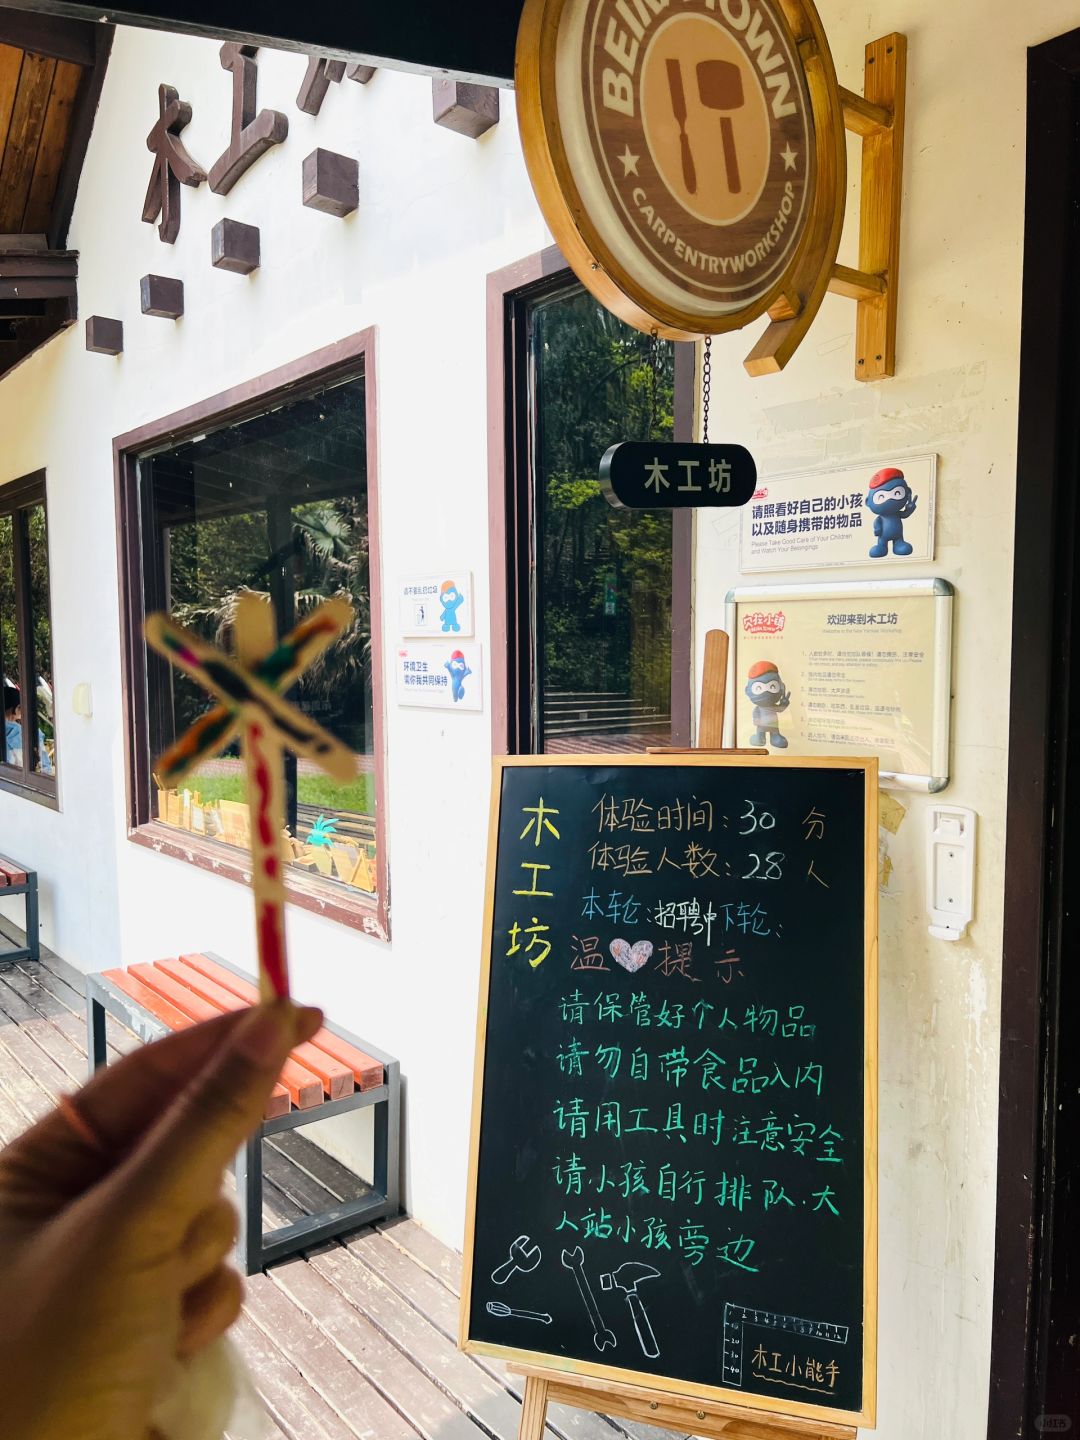 木工
BEI
TOWN
CARPENTRYWORKSHOP
木工坊
请照看好自己的小孩
以及随身携带的物品
Please Take Good Care of Your Children
and Watch Your Belongings
请不要乱扔垃圾
环境卫生
需你我共同保持
欢迎来到木工坊
木工坊
体验时间：30 分
体验人数：28 人
本轮：招聘中 下轮：
温 提示
请保管好个人物品
请勿自带食品入内
请用工具时注意安全
请小孩自行排队.大
人站小孩旁边
木工小能手
小红书